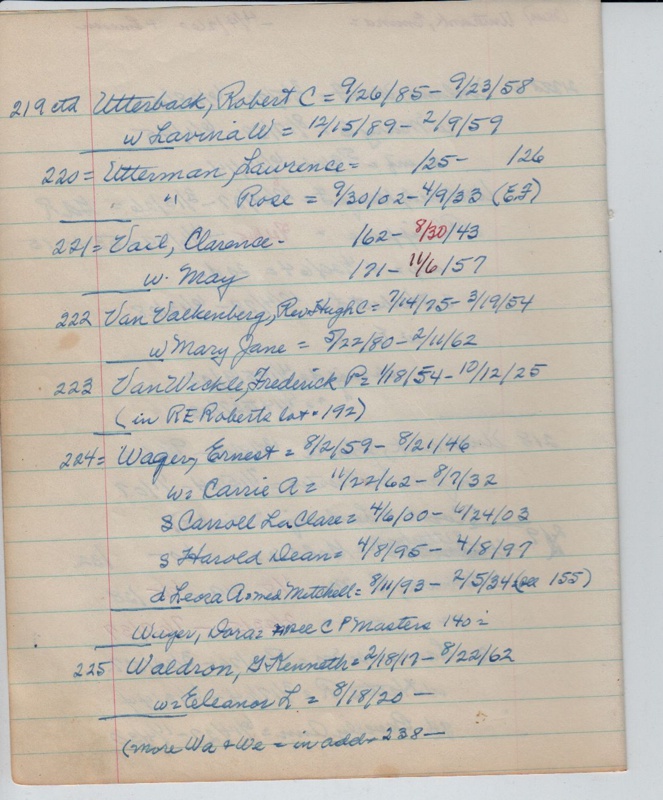 219 ctd Utterback, Robert C = 9/26/85 - 9/23/58
w Lavina W = 12/15/89 - 2/9/59
220 = Utterman, Lawrence = /25 - /26
" Rose = 9/30/02 - 4/9/33 (EF)
221 = Vail, Clarence - 162 - 8/30/43
w. May 171 - 11/6/57
222 Van Valkenberg, Rev Hugh C = 7/14/75 - 3/19/54
w Mary Jane = 5/22/80 - 2/11/62
223 Van Wickle, Frederick P = 1/18/54 - 10/12/25
(in R E Roberts lot = 192)
224 = Wager, Ernest = 8/2/59 - 8/21/46
w = Carrie A = 11/22/62 - 8/7/32
S Carroll LaClare = 4/6/00 - 4/24/03
S Harold Dean = 4/8/95 - 4/8/97
d Leora A = Mitchell = 8/11/93 - 2/5/34 (see 155)
Wager, Dora = see C P Masters 140 =
225 Waldron, G Kenneth = 2/18/17 - 8/22/62
w = Eleanor L = 8/18/20 -
(more Wa + We = in add - 238 -